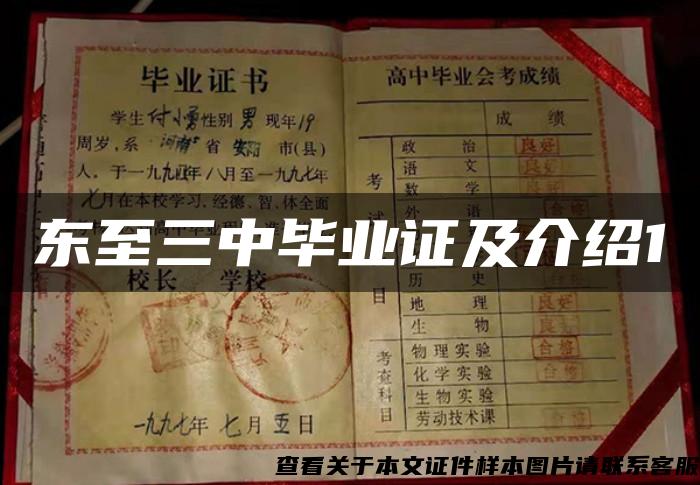 毕业证书
学生付小勇性别男现年19
周岁，系河南省安阳市(县)
人，于一九九四年八月至一九九七年
七月在本校学习，经德、智、体全面
东至三中毕业证及介绍1
校长 学校
一九九七年七月五日
高中毕业会考成绩
成绩
考试
目
政治 良好
语文 良好
数学
外语 合格
历史
地理 良好
生物 良好
考查科目
物理实验 合格
化学实验 合格
生物实验
劳动技术课 合格
查看关于本文证件样本图片请联系客服